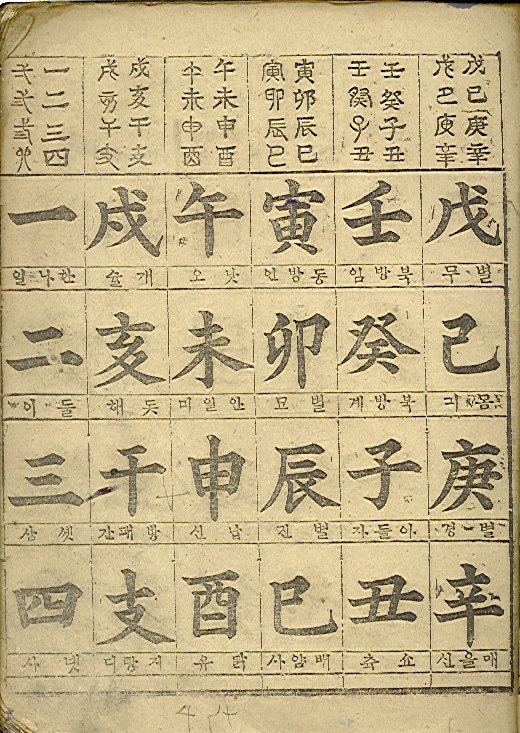 戊己庚辛
戊己庚辛
戊
별무
己
몸긔
庚
별경
辛
매을신
壬癸子丑
壬癸子丑
壬
북방임
癸
북방계
子
아들자
丑
쇼츅
寅卯辰巳
寅卯辰巳
寅
동방인
卯
별묘
辰
별진
巳
배암사
午未申酉
午未申酉
午
낫오
未
안일미
申
납신
酉
닭유
戌亥干支
戌亥干支
戌
개술
亥
돗해
干
방패간
支
一二三四
弌弍弎四
一
한나일
二
둘이
三
셋삼
四
넷사